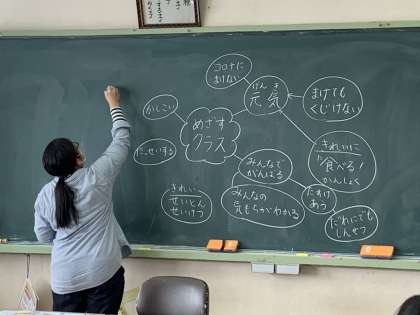 コロナに
まけない
げん き
元気
まけても
くじけない
かしこい
めざす
クラス
たっせいする
きれいに
食べる!
かんしょく
みんなで
がんばる
きれい
せいとん
せいけつ
みんなの
気もちがわかる
たすけ
あう
だれにでも
しんせつ